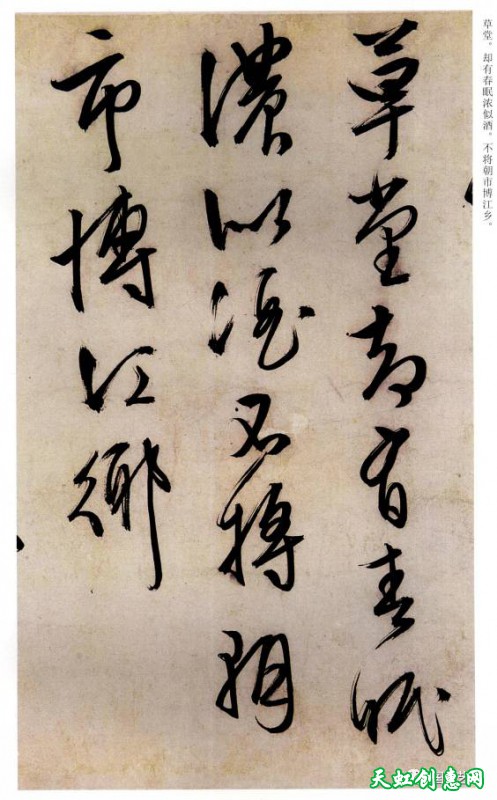 草堂却有春眠
濃似酒不将朝
市博江鄉
草堂。却有春眠浓似酒。不将朝市博江乡。
天虹创意网